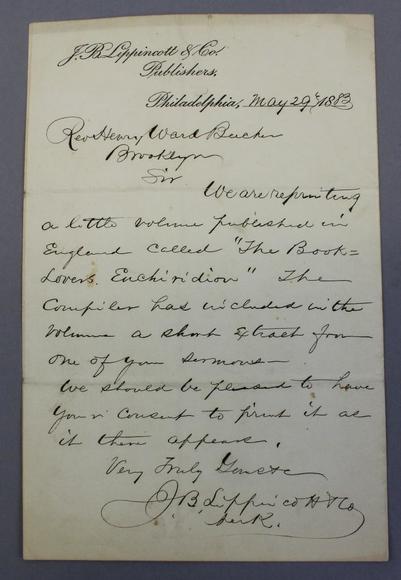 J. B. Lippincott & Co.
Publishers,
Philadelphia, May 29th, 1883
Rev Henry Ward Beecher
Brooklyn
Sir
We are reprinting
a little volume published in
England called "The Book=
Lovers Enchiridion" The
Compiler has included in the
Volume a short Extract from
one of your Sermons—
We should be pleased to have
Your Consent to print it as
it there appears.
Very Truly Yours &c
J B Lippincott & Co